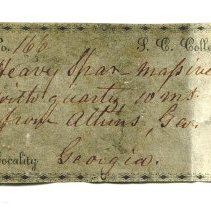 No. 166 S. C. Colle
Heavy Spar massive
with quartz 10 ms
from Athens, Ga.
Locality Georgia.